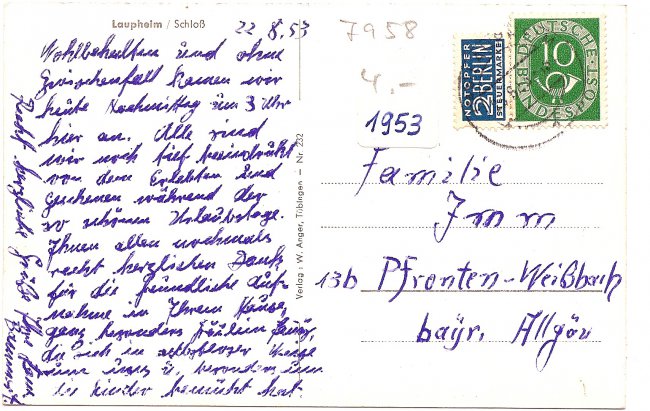 Laupheim / Schloß
22.8.53
Wohlbehalten und ohne
Zwischenfall kamen wir
heute Nachmittag um 3 Uhr
hier an. Alle sind
wir noch tief beeindruckt
von dem Erlebten und
Gesehenen während der
so schönen Urlaubstage.
Ihnen allen nochmals
recht herzlichen Dank
für die freundliche Auf-
nahme in Ihrem Hause,
ganz besonders Fräulein
die sich in selbstloser Weise
um uns u. besonders um
die Kinder bemüht hat.
Recht herzliche Grüße Ihre Fam.
Verlag: W. Anger, Tübingen — Nr 232
7958
4.-
1953
NOTOPFER
2 BERLIN
STEUERMARKE
DEUTSCHE
BUNDESPOST
10
Familie
Imm
13b Pfronten-Weißbach
bayr. Allgäu